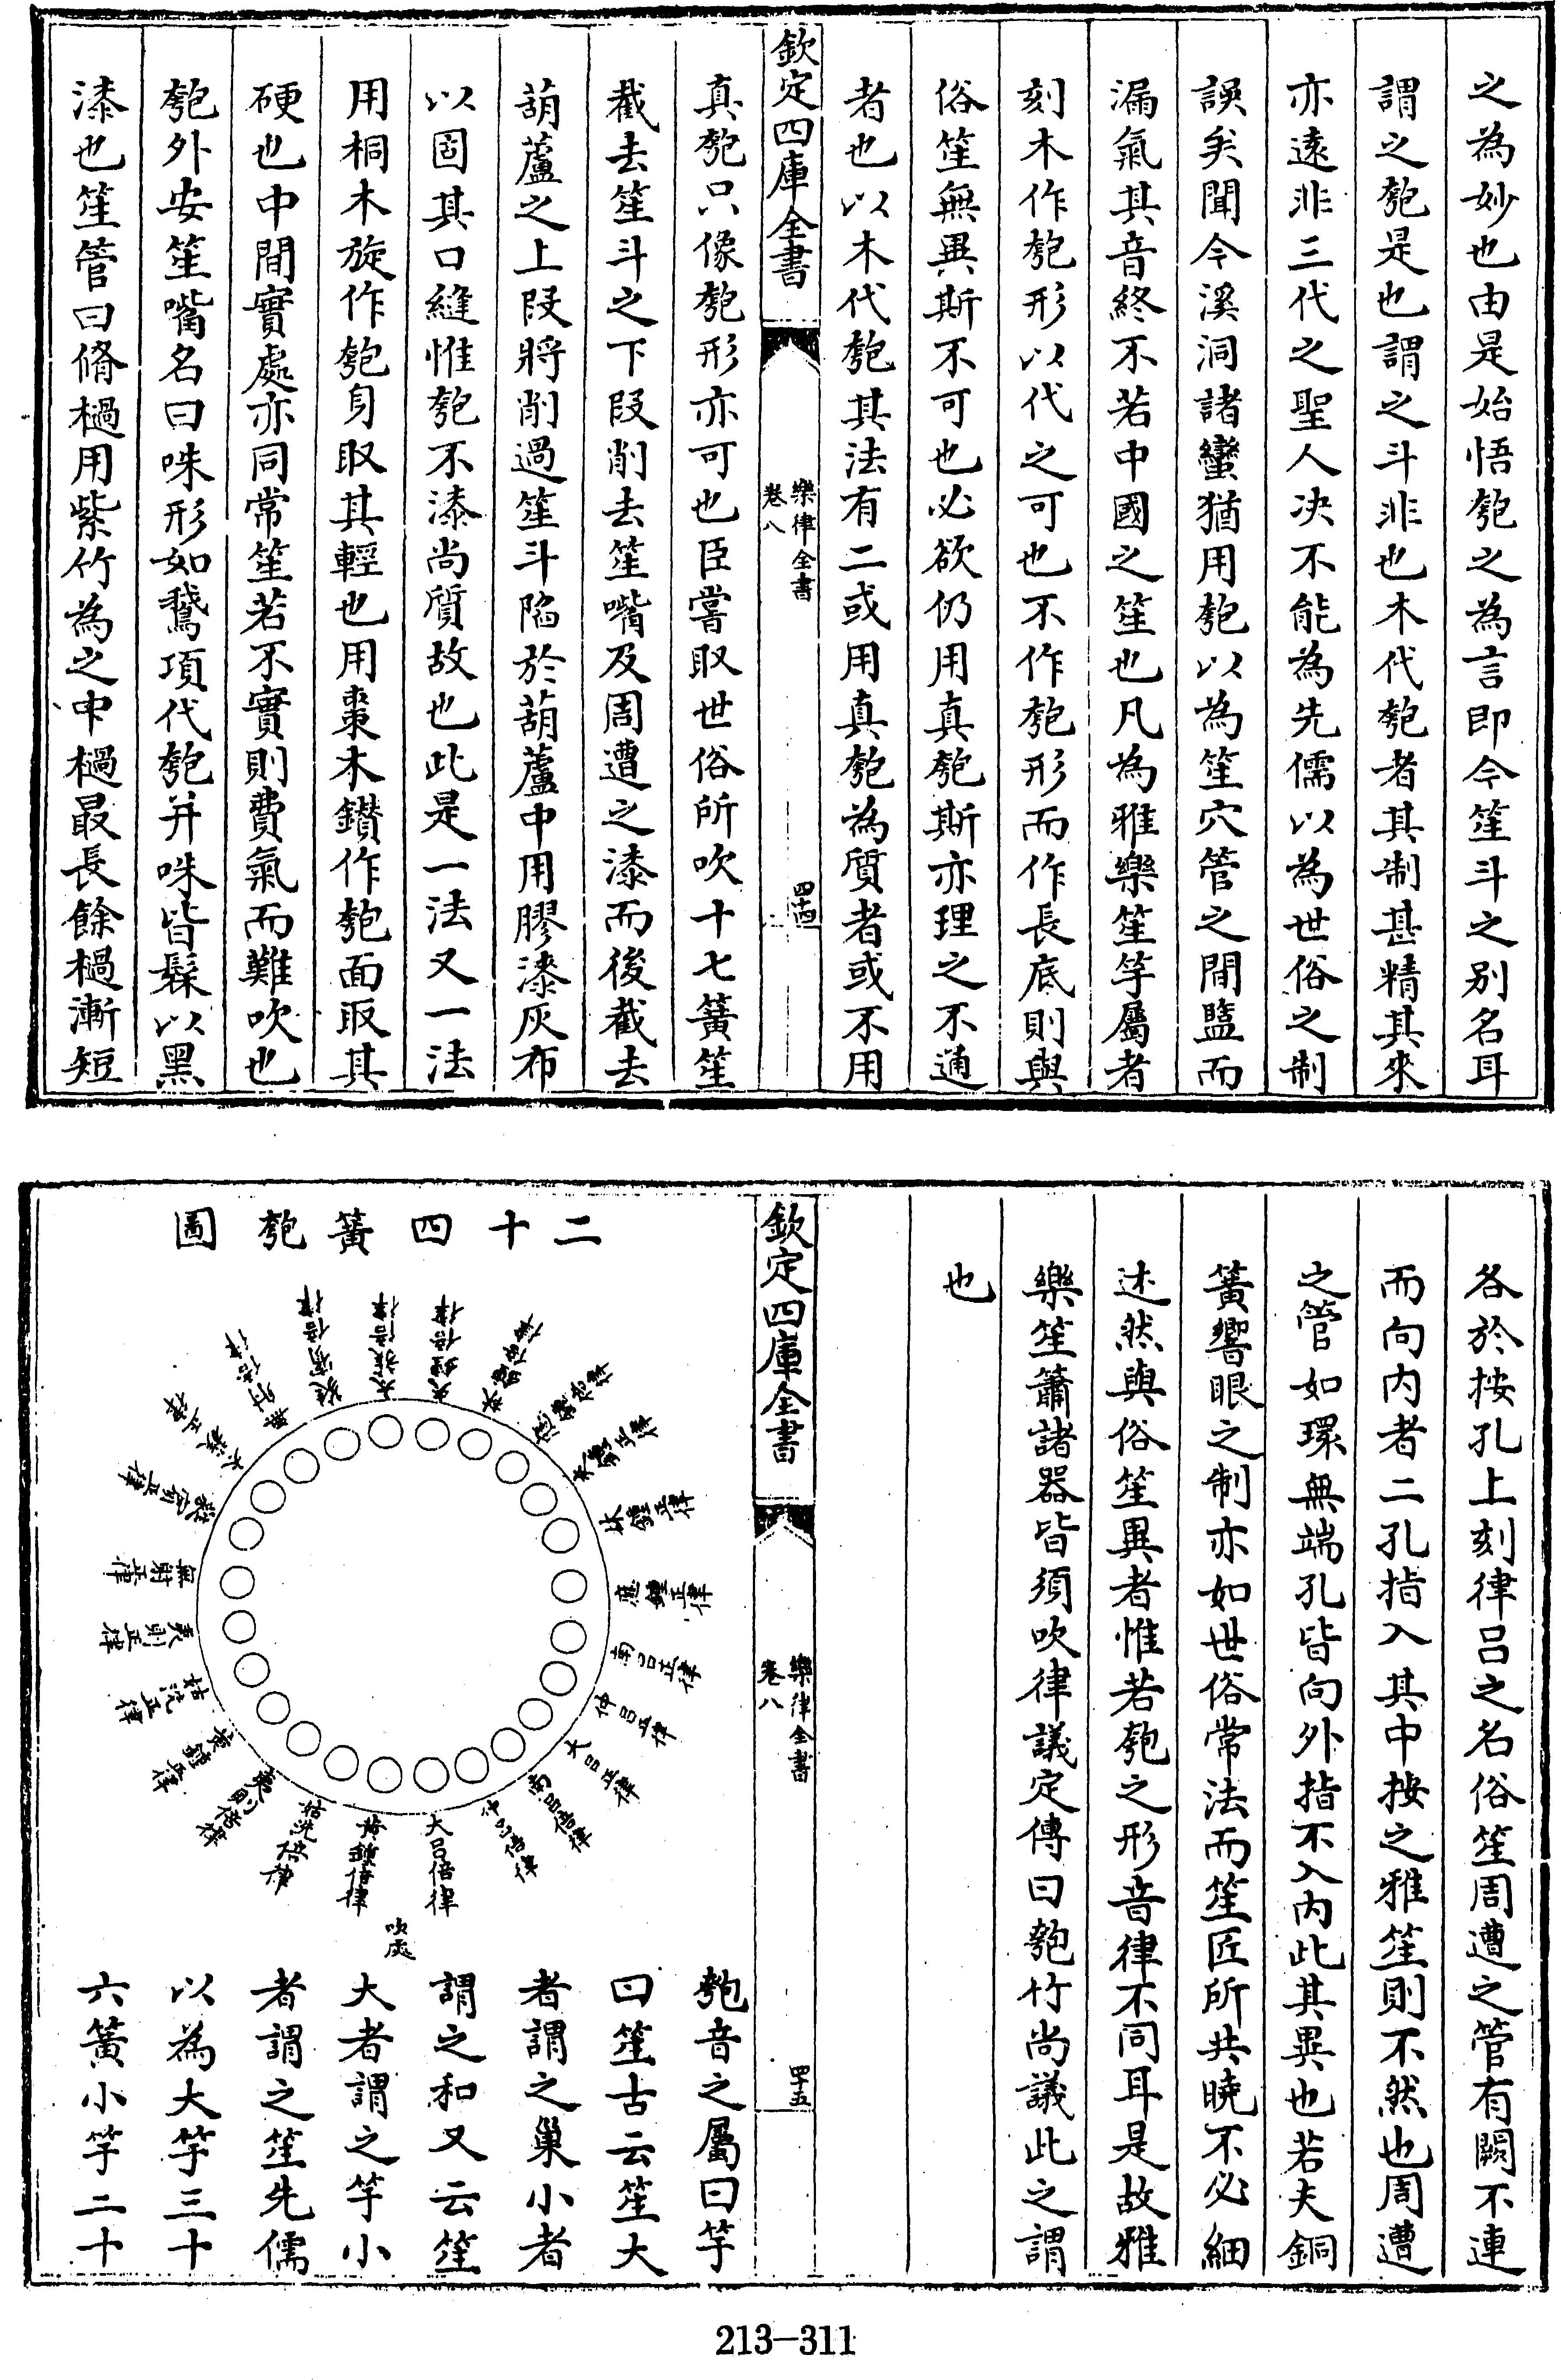 之為妙也由是始悟匏之為言即今笙斗之别名耳
謂之匏是也謂之斗非也木代匏者其制甚精其來
亦遠非三代之聖人决不能為先儒以為世俗之制
誤矣聞今溪洞諸蠻猶用匏以為笙穴管之間盬而
漏氣其音終不若中國之笙也凡為雅樂笙竽屬者
刻木作匏形以代之可也不作匏形而作長底則與
俗笙無異斯不可也必欲仍用真匏斯亦理之不通
者也以木代匏其法有二或用真匏為質者或不用
欽定四庫全書
樂律全書
卷八
四十四
真匏只像匏形亦可也臣嘗取世俗所吹十七簧笙
截去笙斗之下段削去笙嘴及周遭之漆而後截去
葫蘆之上段將削過笙斗陷於葫蘆中用膠漆灰布
以固其口縫惟匏不漆尚質故也此是一法又一法
用桐木旋作匏身取其輕也用棗木鑚作匏面取其
硬也中間實處亦同常笙若不實則費氣而難吹也
匏外安笙嘴名曰咮形如鵞項代匏并咮皆髹以黑
漆也笙管曰脩檛用紫竹為之中檛最長餘檛漸短
各於按孔上刻律吕之名俗笙周遭之管有闕不連
而向内者二孔指入其中按之雅笙則不然也周遭
之管如環無端孔皆向外指不入内此其異也若夫銅
簧響眼之制亦如世俗常法而笙匠所共曉不必細
述然與俗笙異者惟若匏之形音律不同耳是故雅
樂笙簫諸器皆須吹律議定傳曰匏竹尚議此之謂
也
欽定四庫全書
樂律全書
卷八
四十五
二十四簧匏圖
夾鍾倍律
林鍾倍律
應鍾倍律
夾鍾正律
林鍾正律
應鍾正律
南吕正律
仲吕正律
大吕正律
南吕倍律
仲吕倍律
大吕倍律
黄鍾倍律
姑洗倍律
夷則倍律
黄鍾正律
姑洗正律
夷則正律
無射正律
蕤賔正律
太簇正律
無射倍律
蕤賔倍律
太簇倍律
吹處
匏音之屬曰竽
曰笙古云笙大
者謂之巢小者
謂之和又云笙
大者謂之竽小
者謂之笙先儒
以為大竽三十
六簧小竽二十
213-311